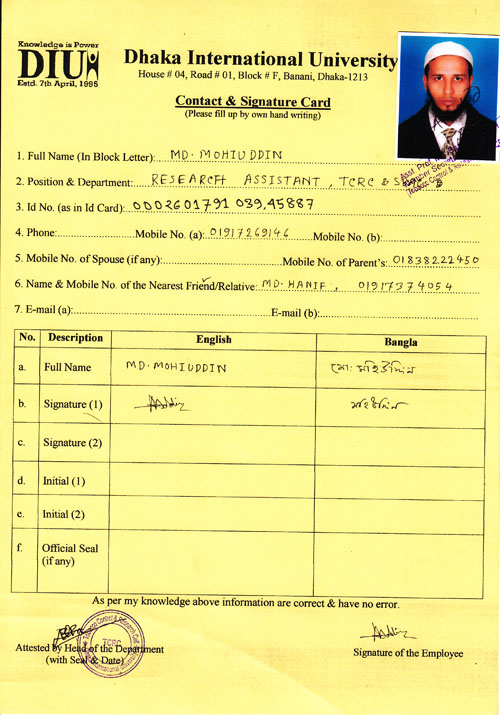 Knowledge is Power
DIU
Estd. 7th April, 1995
Dhaka International University
House # 04, Road # 01, Block # F, Banani, Dhaka-1213
Contact & Signature Card
(Please fill up by own hand writing)
1. Full Name (In Block Letter): MD. MOHIUDDIN
2. Position & Department: RESEARCH ASSISTANT, TCRC &
3. Id No. (as in Id Card): 0002601791 039,45887
4. Phone: Mobile No. (a): 01917269146 Mobile No. (b):
5. Mobile No. of Spouse (if any): Mobile No. of Parent's: 01838222450
6. Name & Mobile No. of the Nearest Friend/Relative: MD. HANIF, 01917374054
7. E-mail (a): E-mail (b):
No. Description English Bangla
a. Full Name MD. MOHIUDDIN মো: মহিউদ্দিন
b. Signature (1) মহিউদ্দিন
c. Signature (2)
d. Initial (1)
e. Initial (2)
f. Official Seal
(if any)
As per my knowledge above information are correct & have no error.
TCRC
Attested by Head of the Department
(with Seal & Date)
Signature of the Employee